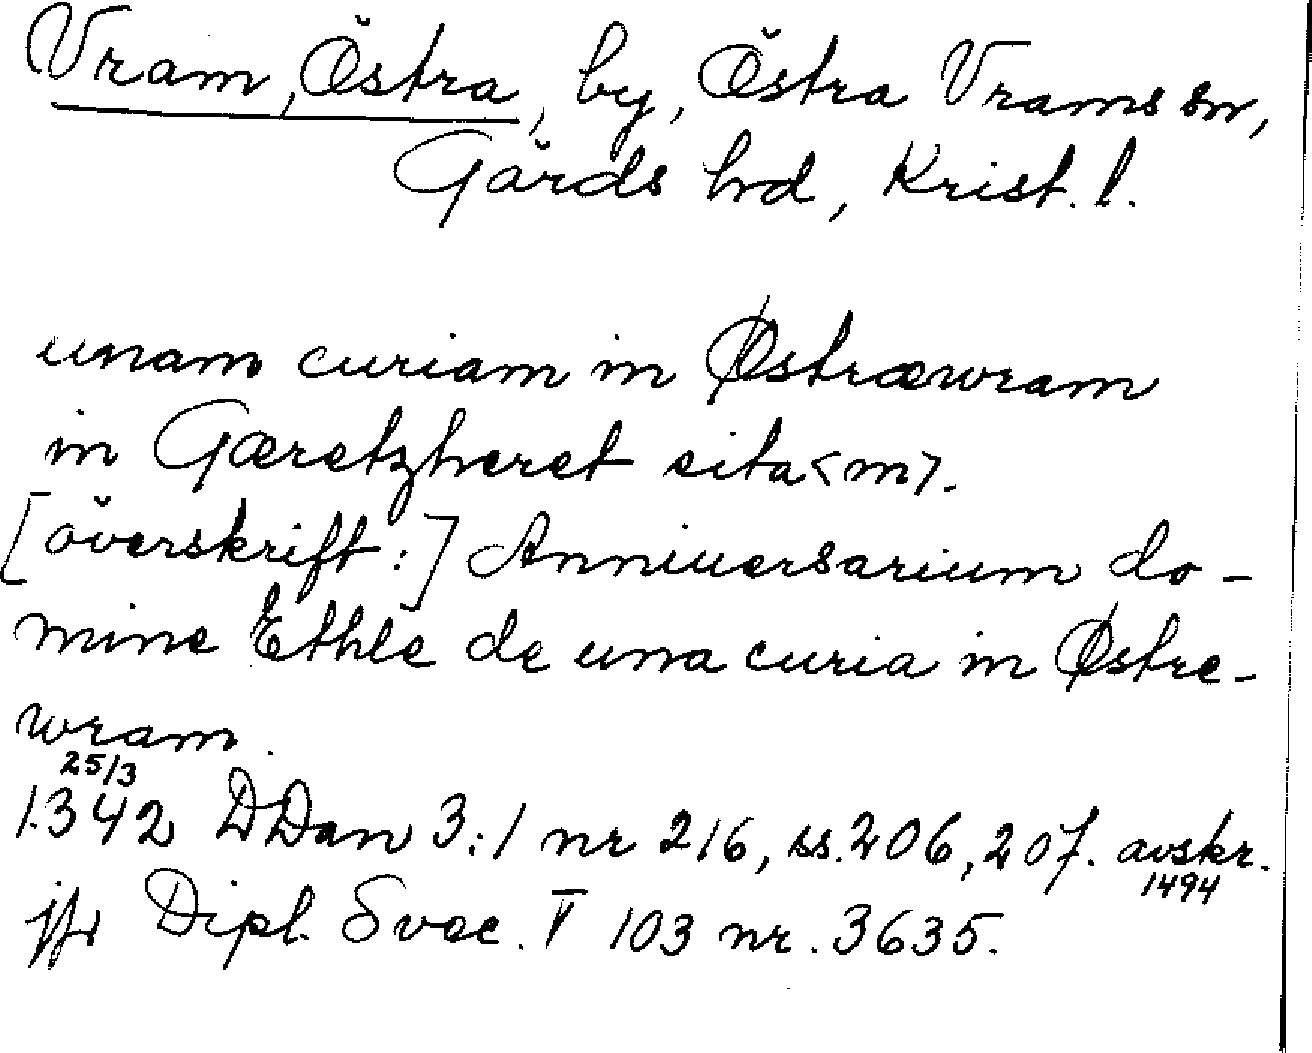 Vram, Östra, by, Östra Vrams sn,
Gärds hrd, Krist. l.
unam curiam in Østræwram
in Gæretzheret sita<m>.
[överskrift:] Anniuersarium do-
mine Ethle de una curia in Østre-
wram.
25/3
1342 DDan 3:1 nr 216, ss. 206, 207. avskr.
1494
jfr Dipl. Svec. V 103 nr. 3635.